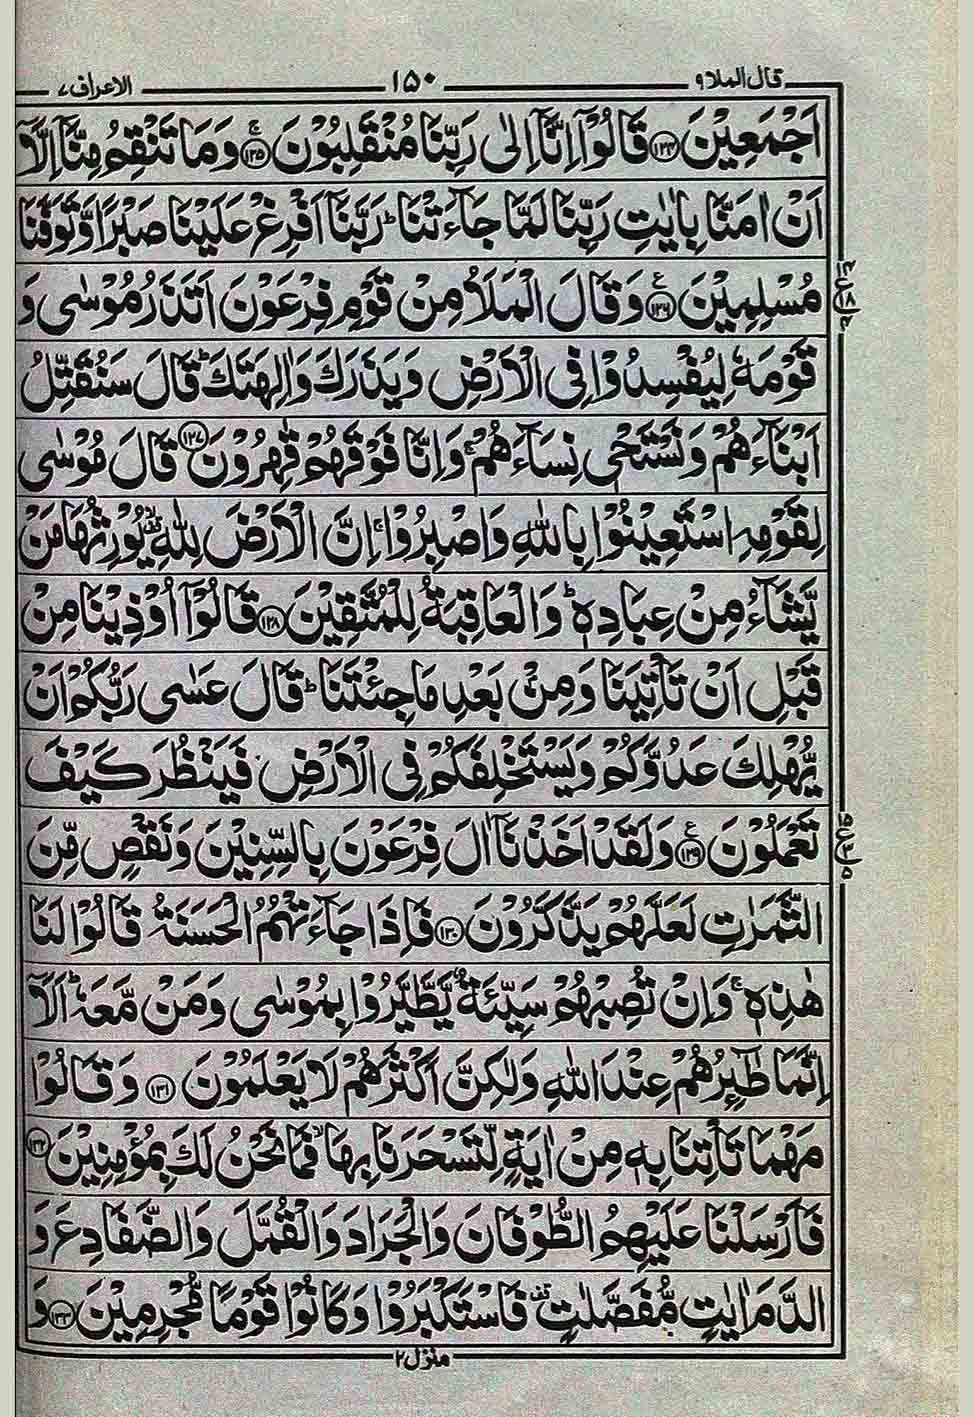 قال الملا ٩ ١٥٠ الاعراف ٧
اَجْمَعِيْنَ ﴿۱۲۴﴾ قَالُوْۤا اِنَّاۤ اِلٰى رَبِّنَا مُنْقَلِبُوْنَ ۚ﴿۱۲۵﴾ وَمَا تَنْقِمُ مِنَّاۤ اِلَّاۤ
اَنْ اٰمَنَّا بِاٰيٰتِ رَبِّنَا لَمَّا جَآءَتْنَا ؕ رَبَّنَاۤ اَفْرِغْ عَلَيْنَا صَبْرًا وَّتَوَفَّنَا
مُسْلِمِيْنَ ﴿۱۲۶﴾ ع وَقَالَ الْمَلَاُ مِنْ قَوْمِ فِرْعَوْنَ اَتَذَرُ مُوْسٰى وَ
قَوْمَهٗ لِيُفْسِدُوْا فِى الْاَرْضِ وَيَذَرَكَ وَاٰلِهَتَكَ ؕ قَالَ سَنُقَتِّلُ
اَبْنَآءَهُمْ وَنَسْتَحْىٖ نِسَآءَهُمْ ۚ وَاِنَّا فَوْقَهُمْ قٰهِرُوْنَ ﴿۱۲۷﴾ قَالَ مُوْسٰى
لِقَوْمِهِ اسْتَعِيْنُوْا بِاللّٰهِ وَاصْبِرُوْا ۚ اِنَّ الْاَرْضَ لِلّٰهِ يُوْرِثُهَا مَنْ
يَّشَآءُ مِنْ عِبَادِهٖ ؕ وَالْعَاقِبَةُ لِلْمُتَّقِيْنَ ﴿۱۲۸﴾ قَالُوْۤا اُوْذِيْنَا مِنْ
قَبْلِ اَنْ تَاْتِيَنَا وَمِنْۢ بَعْدِ مَا جِئْتَنَا ؕ قَالَ عَسٰى رَبُّكُمْ اَنْ
يُّهْلِكَ عَدُوَّكُمْ وَيَسْتَخْلِفَكُمْ فِى الْاَرْضِ فَيَنْظُرَ كَيْفَ
تَعْمَلُوْنَ ﴿۱۲۹﴾ ع وَلَقَدْ اَخَذْنَاۤ اٰلَ فِرْعَوْنَ بِالسِّنِيْنَ وَنَقْصٍ مِّنَ
الثَّمَرٰتِ لَعَلَّهُمْ يَذَّكَّرُوْنَ ﴿۱۳۰﴾ فَاِذَا جَآءَتْهُمُ الْحَسَنَةُ قَالُوْا لَنَا
هٰذِهٖ ۚ وَاِنْ تُصِبْهُمْ سَيِّئَةٌ يَّطَّيَّرُوْا بِمُوْسٰى وَمَنْ مَّعَهٗ ؕ اَلَاۤ
اِنَّمَا طٰٓئِرُهُمْ عِنْدَ اللّٰهِ وَلٰكِنَّ اَكْثَرَهُمْ لَا يَعْلَمُوْنَ ﴿۱۳۱﴾ وَقَالُوْا
مَهْمَا تَاْتِنَا بِهٖ مِنْ اٰيَةٍ لِّتَسْحَرَنَا بِهَا ۙ فَمَا نَحْنُ لَكَ بِمُؤْمِنِيْنَ ﴿۱۳۲﴾
فَاَرْسَلْنَا عَلَيْهِمُ الطُّوْفَانَ وَالْجَرَادَ وَالْقُمَّلَ وَالضَّفَادِعَ وَ
الدَّمَ اٰيٰتٍ مُّفَصَّلٰتٍ فَاسْتَكْبَرُوْا وَكَانُوْا قَوْمًا مُّجْرِمِيْنَ ﴿۱۳۳﴾ وَ
منزل ۲